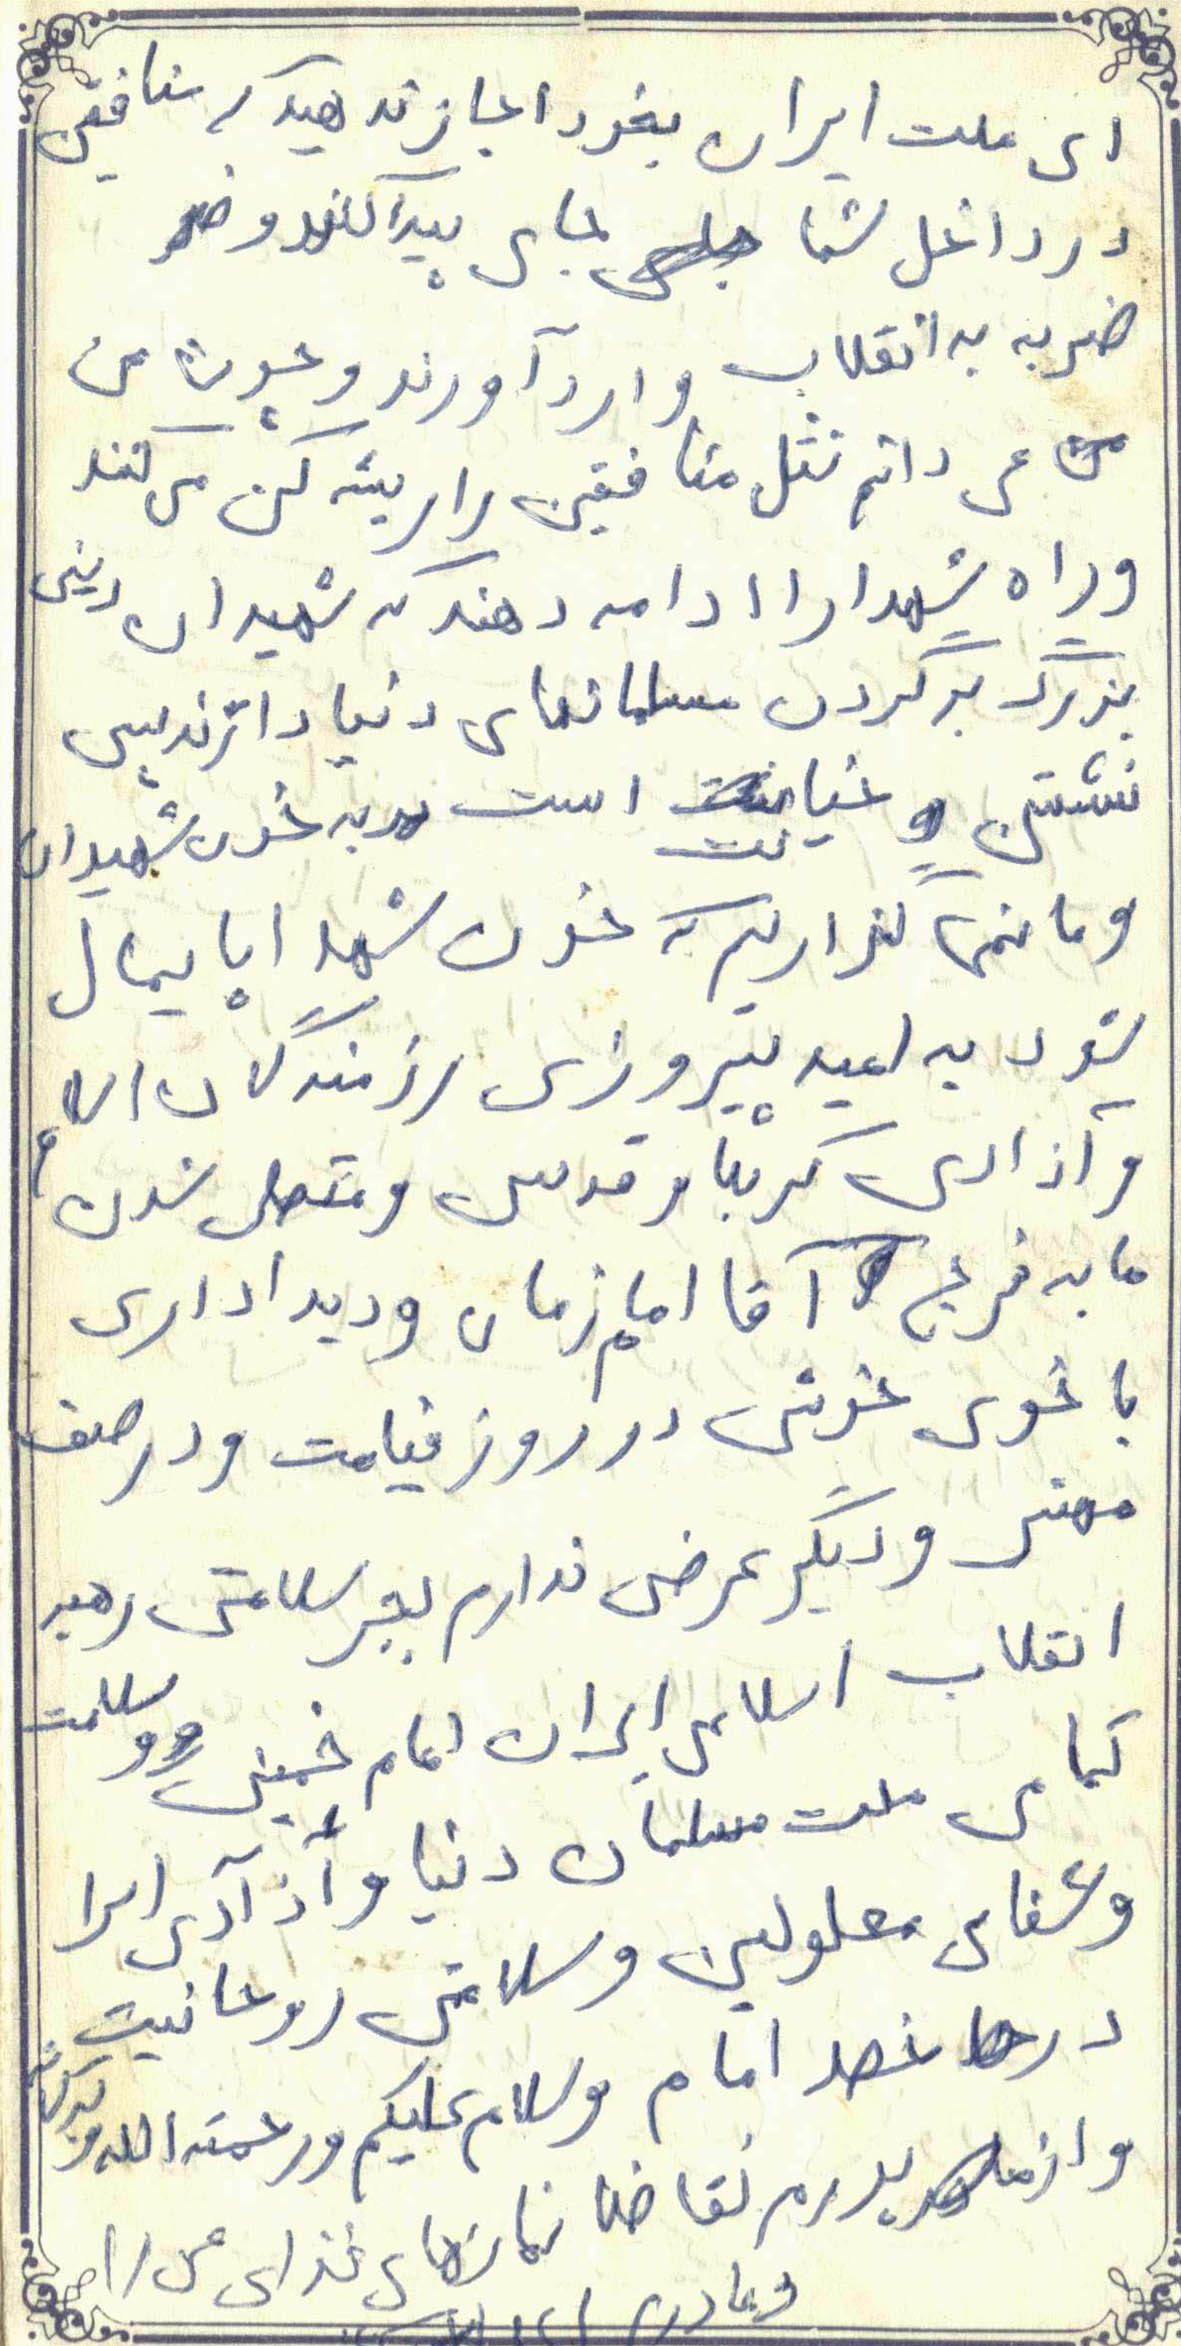 ای ملت ایران بخود اجازه ندهید که منافقین
در داخل شما جای پیدا کنند و
ضربه به انقلاب وارد آورند و چون من
می دانم نثل منافقین را ریشه کن می کنند
و راه شهدا را ادامه دهند که شهیدان دینی
بزرگ بر گردن مسلمانهای دنیا داشتند پس
نشستن خیانت است به خون شهیدان
و ما نمی گذاریم که خون شهدا پایمال
شود به امید پیروزی رزمندگان اسلام
و آزادی کربلا و قدس و متصل شدن
ما به فرج آقا امام زمان و دیداداری
با خوی خوش در روز قیامت و در صف
مهش و دیگر عرضی ندارم بجز سلامتی رهبر
انقلاب اسلامی ایران امام خمینی و سلامت
تمامی ملت مسلمان دنیا و آزادی اسرا
و شفای معلولین و سلامتی روحانیت
در خط امام وسلام علیکم ورحمته الله وبرکاته
و از پدرم تقاضا نمازهای غذای من را
و مادرم